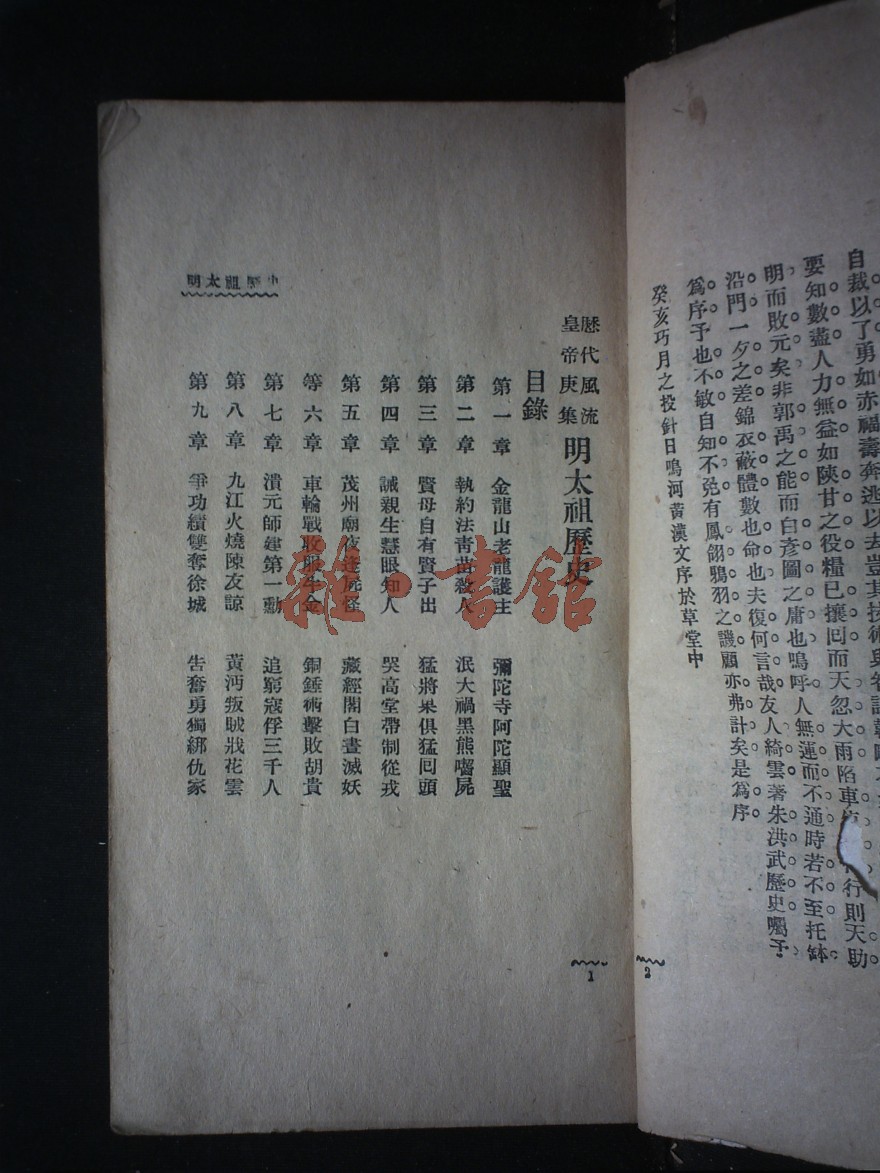 自裁以了勇如赤福壽奔逃以去豈其技術與智謀
要知數盡人力無益如陝甘之役糧已攘囘而天忽大雨陷車 行則天助
明而敗元矣非郭禹之能而白彥圖之庸也嗚呼人無運而不通時若不至托缽
沿門一夕之差錦衣蔽體數也命也夫復何言哉友人綺雲著朱洪武歷史囑予
爲序予也不敏自知不免有鳳翎鴉羽之譏顧亦弗計矣是爲序
癸亥巧月之投針日鳴河黃漢文序於草堂中
2
歷代風流
皇帝庚集
明太祖歷史
目錄
第一章 金龍山老龍護主 彌陀寺阿陀顯聖
第二章 執約法靑苗殺人 泯大禍黑熊嚐屍
第三章 賢母自有賢子出 猛將果俱猛囘頭
第四章 誠親生慧眼知人 哭高堂帶制從戎
第五章 茂州廟夜逢屍怪 藏經閣白晝滅妖
等六章 車輪戰收服牛金 銅錘術擊敗胡貴
第七章 潰元師建第一勳 追窮寇俘三千人
第八章 九江火燒陳友諒 黃沔叛賊戕花雲
第九章 爭功績雙奪徐城 吿奮勇獨綁仇家
明太祖歷史
1
雜·書館